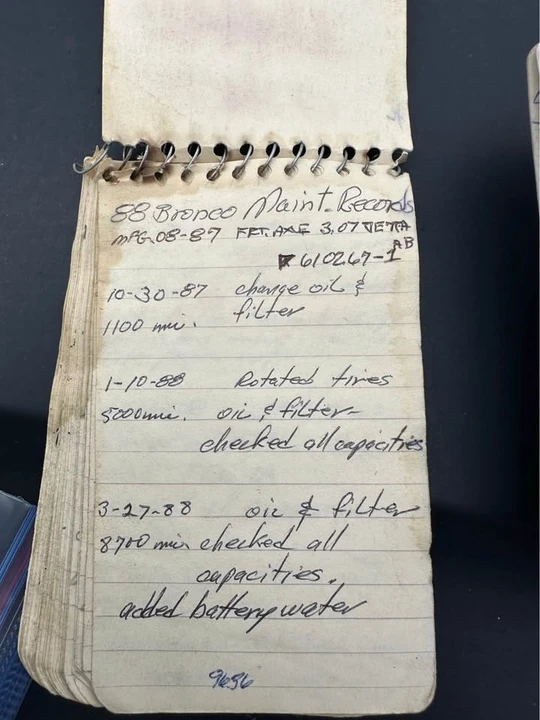 88 Bronco Maint. Records
MFG. 08-87 FRT. AXE 3.07
AB
610267-1
10-30-87 change oil &
1100 mi. filter
1-10-88 Rotated tires
5000 mi. oil & filter-
checked all capacities
3-27-88 oil & filter
8700 mi. checked all
capacities.
added battery water
9636